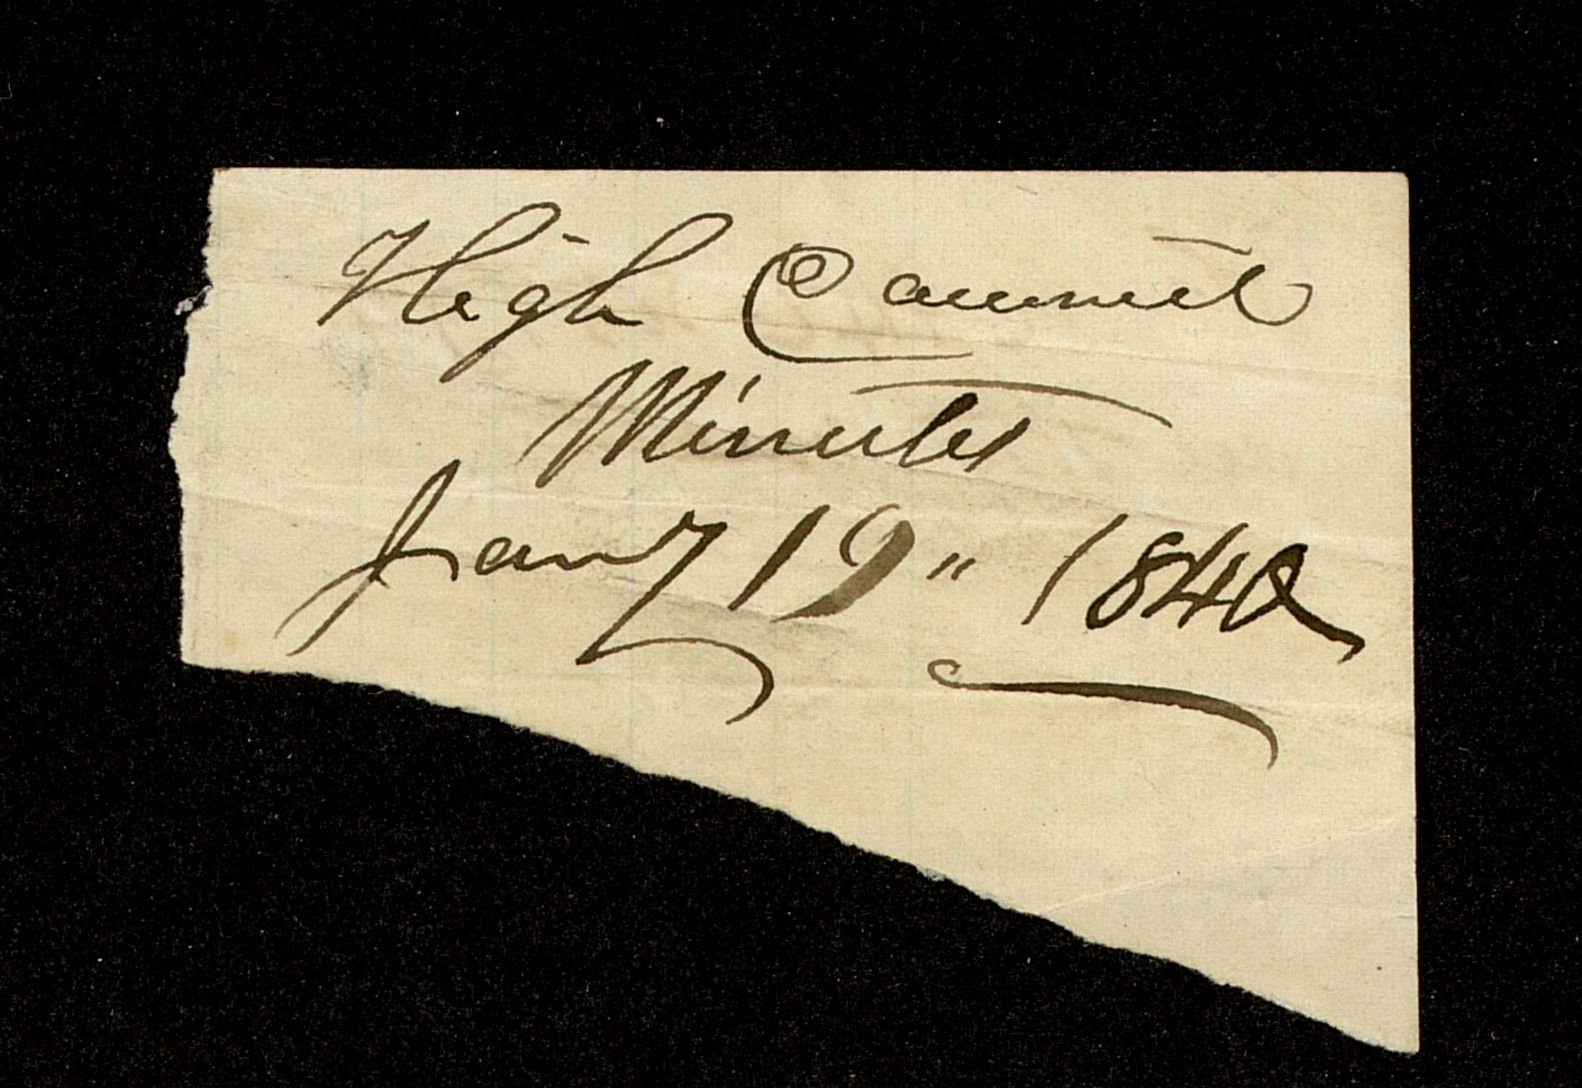 High Council
Minutes
Jany 19" 1840